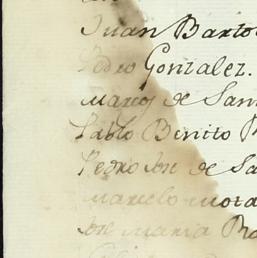 Juan Barto
Pedro Gonzalez.
Marcos de San
Pablo Benito
Pedro Jose de Sa
Marcelo Mora
Jose Maria Ro